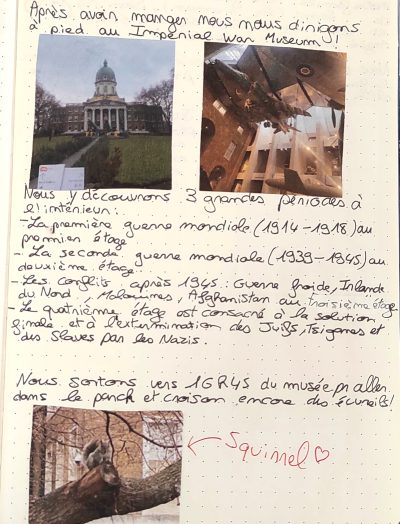 Après avoir manger nous nous dirigons
à pied au Impérial War Museum!
Nous y découvrons 3 grandes périodes à
l'intérieur:
- La première guerre mondiale (1914-1918) au
premier étage
- La seconde guerre mondiale (1939-1945) au
deuxième étage.
- Les conflits après 1945: Guerre froide, Irlande
du Nord, Malouines, Afghanistan au troisième étage
- Le quatrième étage est consacré à la solution
finale et à l'extermination des Juifs, Tsiganes et
des Slaves par les Nazis.
Nous sortons vers 16R45 du musée pr aller
dans le parck et croison encore des écureils!
Squirrel ♡